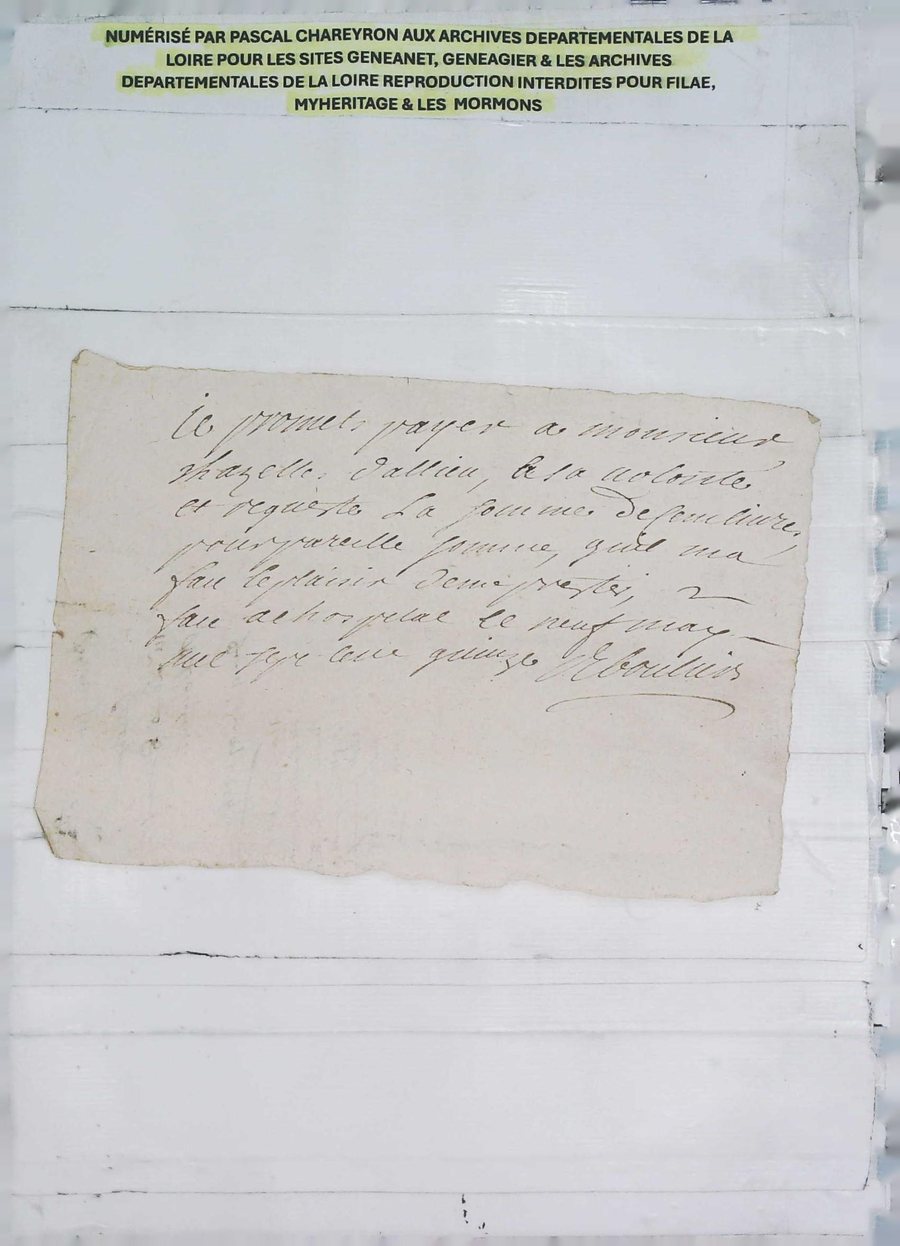 NUMÉRISÉ PAR PASCAL CHAREYRON AUX ARCHIVES DEPARTEMENTALES DE LA
LOIRE POUR LES SITES GENEANET, GENEAGIER & LES ARCHIVES
DEPARTEMENTALES DE LA LOIRE REPRODUCTION INTERDITES POUR FILAE,
MYHERITAGE & LES MORMONS
Je promets payer a monsieur
chazelles dallieu, a sa volonté
et requeste La somme de cent livres
pour pareille somme, quil ma
fait le plaisir de me prester,
fait a lhospital le neuf may
mil sept cent quinze